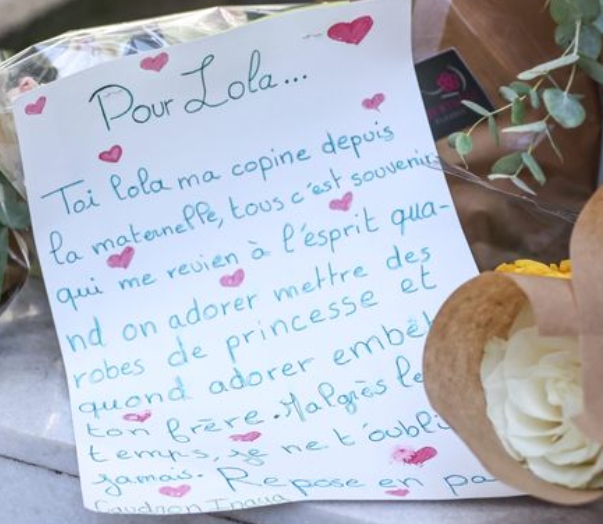 Pour Lola...
Toi lola ma copine depuis
la maternelle, tous c'est souvenir
qui me revien à l'esprit qua-
nd on adorer mettre des
robes de princesse et
quond adorer embêt
ton frère. Malgrès le
temps, je ne t'oubli
jamais. Repose en pa